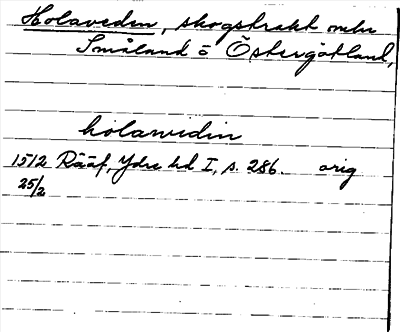 Holaveden, skogstrakt mellan
Småland o Östergötland,
holawedin
1512 Rääf, Ydre hd I, s. 286. orig
25/2